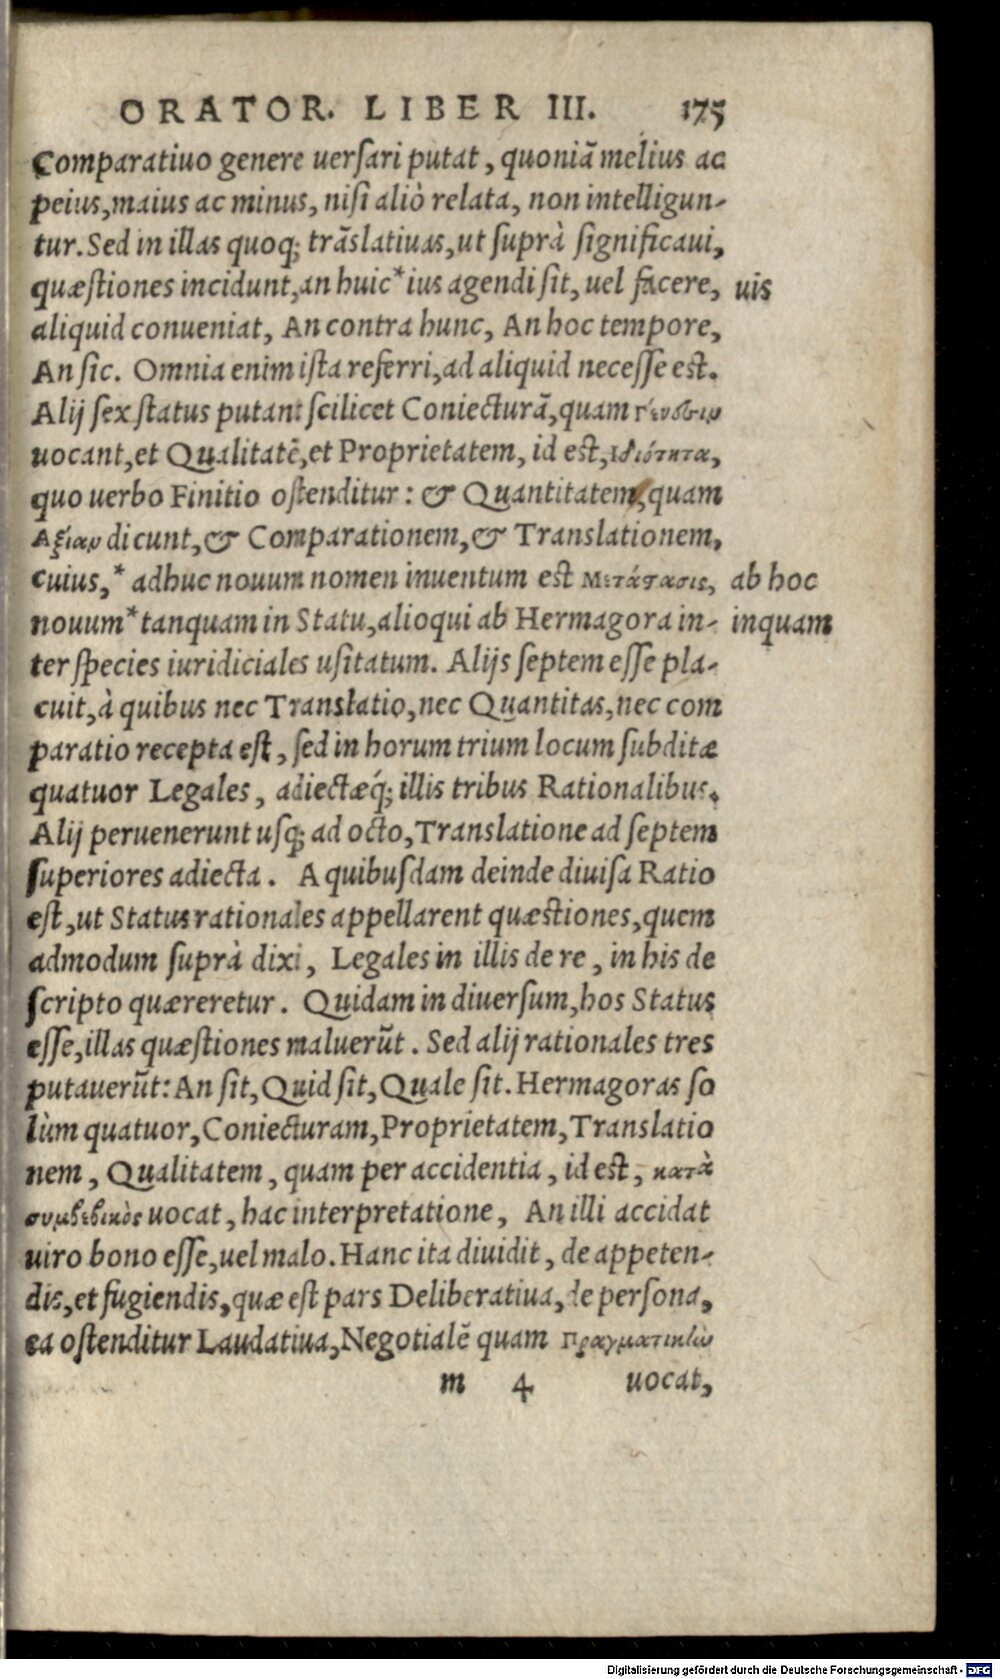 ORATOR. LIBER III. 175
Comparatiuo genere uersari putat, quoniã melius ac
peius, maius ac minus, nisi aliò relata, non intelligun-
tur. Sed in illas quoq; trãslatiuas, ut suprà significaui,
quæstiones incidunt, an huic* ius agendi sit, uel facere, uis
aliquid conueniat, An contra hunc, An hoc tempore,
An sic. Omnia enim ista referri, ad aliquid necesse est.
Alij sex status putant scilicet Coniecturã, quam Γένεσιν
uocant, et Qualitatẽ, et Proprietatem, id est, Ιδιότητα,
quo uerbo Finitio ostenditur: & Quantitatem, quam
Αξίαν dicunt, & Comparationem, & Translationem,
cuius, * adhuc nouum nomen inuentum est Μετάστασις, ab hoc
nouum* tanquam in Statu, alioqui ab Hermagora in- inquam
ter species iuridiciales usitatum. Alijs septem esse pla-
cuit, à quibus nec Translatio, nec Quantitas, nec com
paratio recepta est, sed in horum trium locum subditæ
quatuor Legales, adiectæq́; illis tribus Rationalibus.
Alij peruenerunt usq; ad octo, Translatione ad septem
superiores adiecta. A quibusdam deinde diuisa Ratio
est, ut Status rationales appellarent quæstiones, quem
admodum suprà dixi, Legales in illis de re, in his de
scripto quæreretur. Quidam in diuersum, hos Status
esse, illas quæstiones maluerũt. Sed alij rationales tres
putauerũt: An sit, Quid sit, Quale sit. Hermagoras so
lùm quatuor, Coniecturam, Proprietatem, Translatio
nem, Qualitatem, quam per accidentia, id est, κατὰ
συμβεβικὸς uocat, hac interpretatione, An illi accidat
uiro bono esse, uel malo. Hanc ita diuidit, de appeten-
dis, et fugiendis, quæ est pars Deliberatiua, de persona,
ea ostenditur Laudatiua, Negotialẽ quam Πραγματικὴν
m 4 uocat,
Digitalisierung gefördert durch die Deutsche Forschungsgemeinschaft - DFG